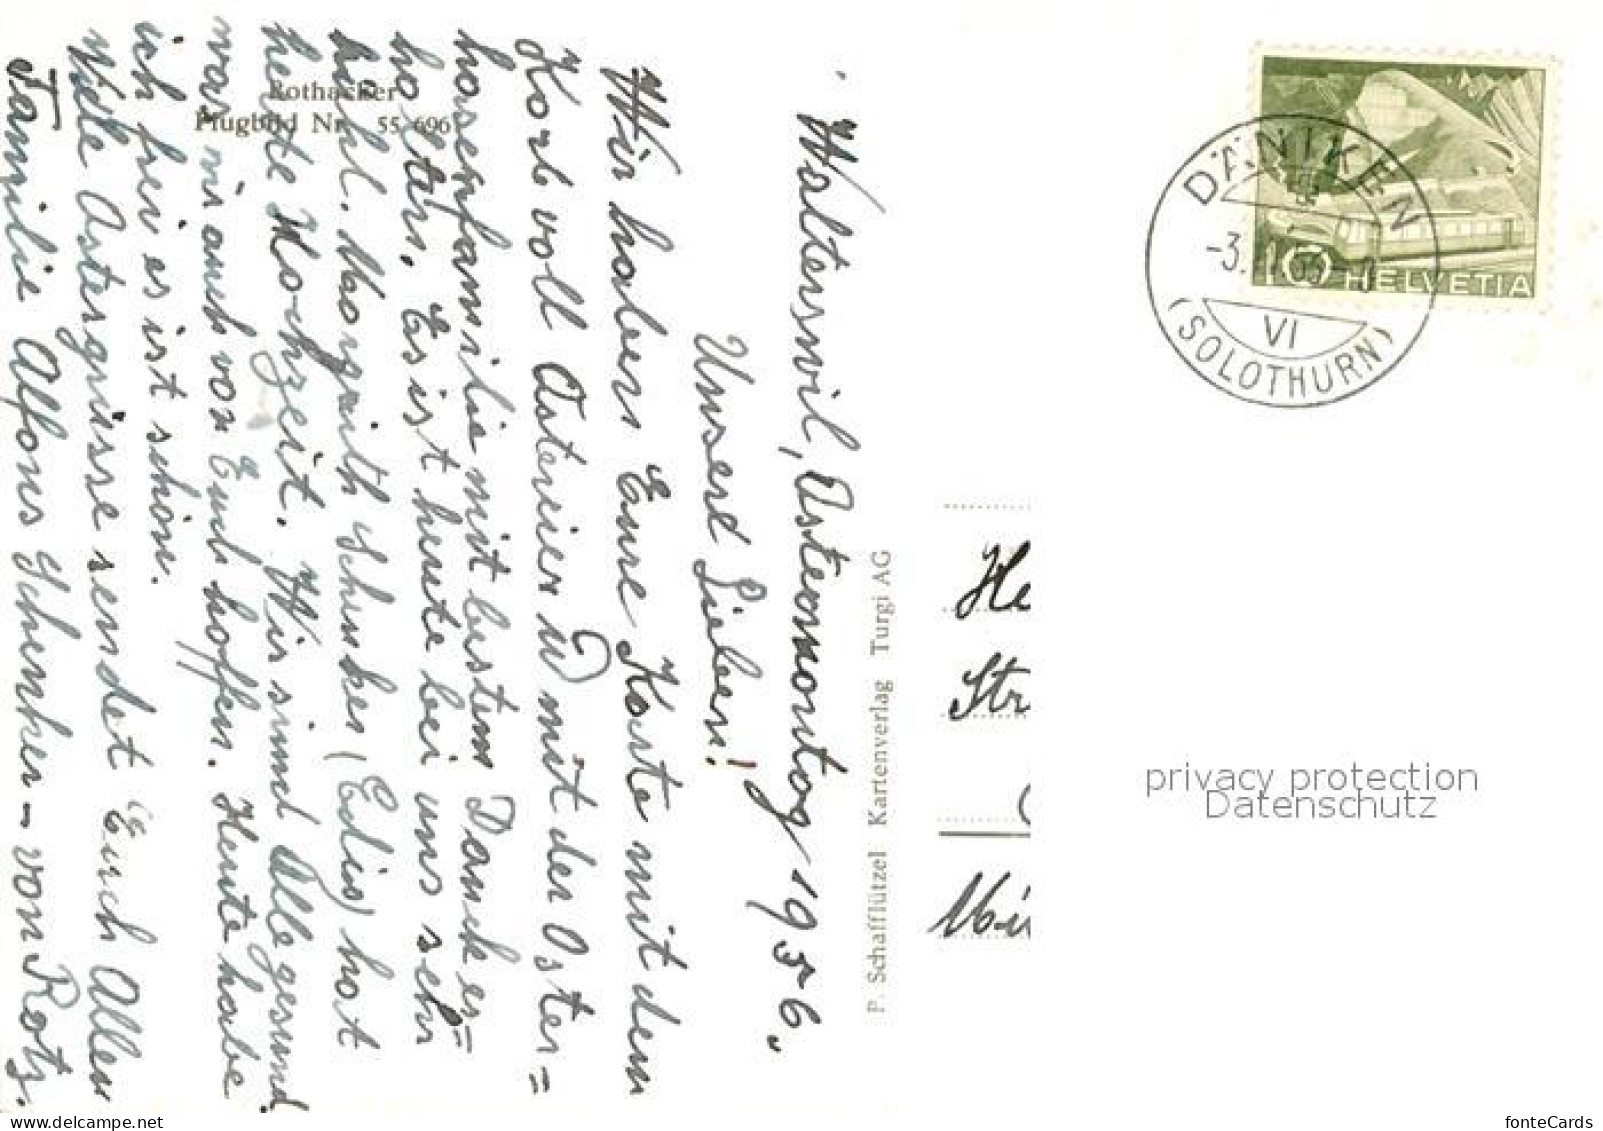 Walterswil, Ostermontag 1956.
Unsere Lieben!
Wir haben Eure Karte mit dem
Korb voll Ostereier u mit der Oster=
hasenfamilie mit bestem Dank er=
halten. Es ist heute bei uns sehr
kühl. Margrith Schenker (Edis) hat
heute Hochzeit. Wir sind Alle gesund
was wir auch von Euch hoffen. Heute habe
ich frei es ist schön.
Viele Ostergrüsse sendet Euch Allen
Familie Alfons Schenker – von Rotz.
Rothacker
Flugbild Nr. 55 696
P. Schafflützel Kartenverlag Turgi AG
DÄNIKEN
-3.
VI
(SOLOTHURN)
10 HELVETIA
He
Str
privacy protection
Datenschutz
www.delcampe.net
fonteCards